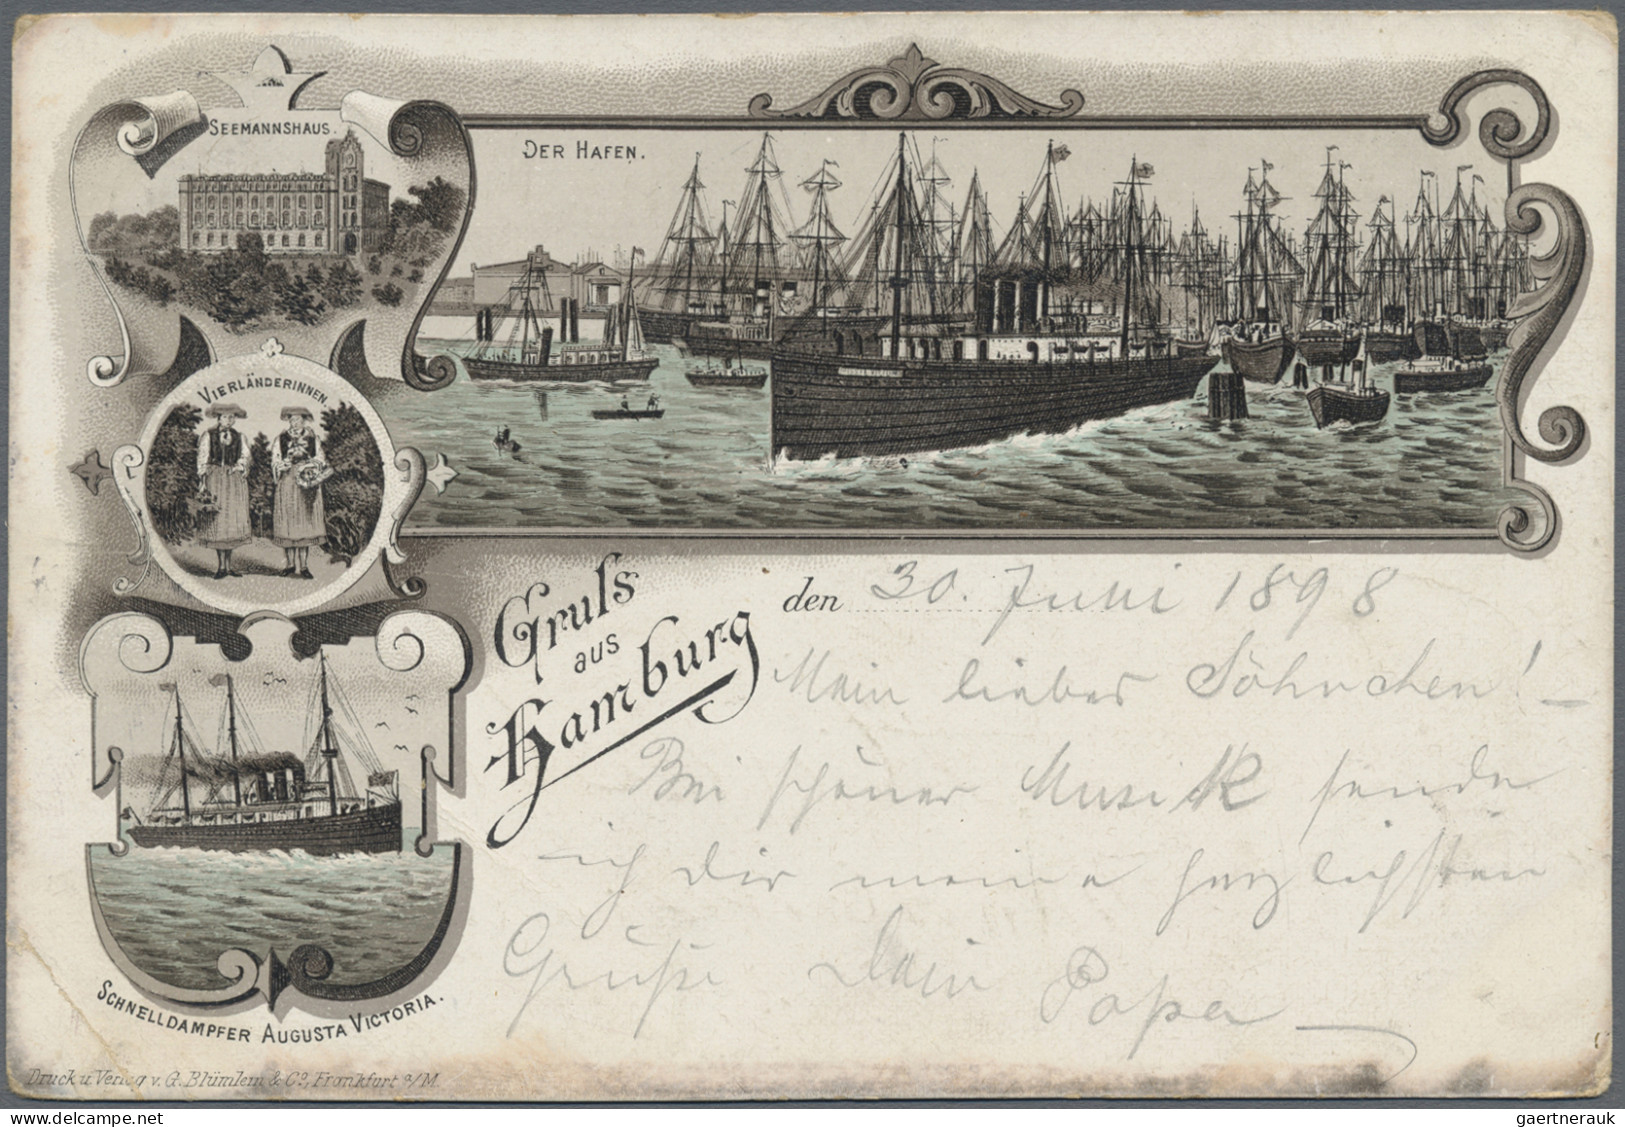 SEEMANNSHAUS.
DER HAFEN.
VIERLÄNDERINNEN.
Gruſs
aus
Hamburg
den 30. Juni 1898
Mein lieber Söhnchen! –
Bei schöner Musik sende
ich Dir meine herzlichsten
Grüße Dein Papa
SCHNELLDAMPFER AUGUSTA VICTORIA.
Druck u. Verlag v. G. Blümlein & Co, Frankfurt a/M.
gaertnerauk